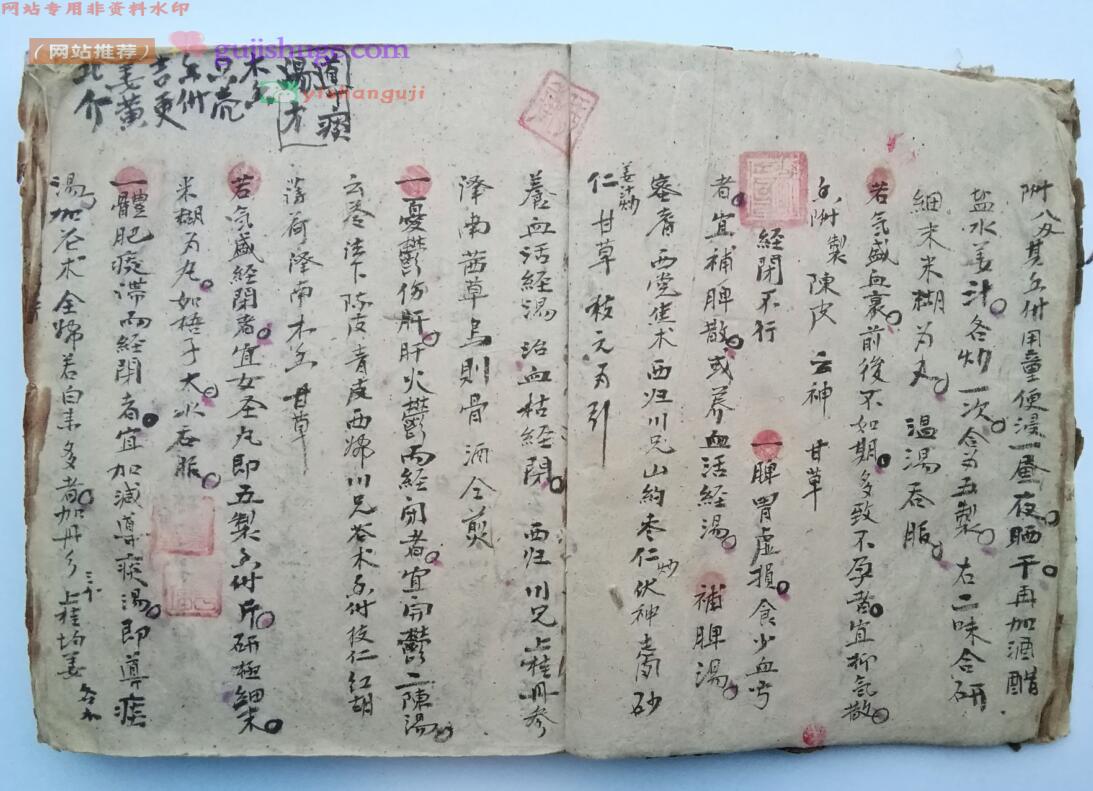 网站专用非资料水印
（网站推荐）
gujishuge.com
yishanguji
附八分其香附用童便浸一昼夜晒干再加酒醋
盐水姜汁各炒一次合为五製右二味合研
細末米糊为丸温湯吞服
若气盛血衰前後不如期多致不孕者宜抑气散
香附製陳皮云神甘草
經閉不行一脾胃虚損食少血亏
者宜補脾散或养血活經湯補脾湯
蜜耆西党焦术西归川兄山約枣仁炒伏神志肉砂
仁姜炒甘草枝元为引
養血活經湯治血枯經閉西归川兄上桂丹参
泽南茜草乌則骨酒仝煎
一憂鬱伤肝肝火鬱而經闭者宜开鬱二陳湯
云苓法下陈皮青皮西归川兄苍术香附枝仁红胡
薄荷泽南木香甘草
若气盛經闭者宜女圣丸即五製香附斤研極細末
米糊为丸如梧子大水吞服
一體肥痰滞而經闭者宜加減導痰湯即導痰
湯加苍术全归若白末多者加丹皮上桂均姜
道痰
湯方
木香
只壳
香附
吉更
姜黄
北介